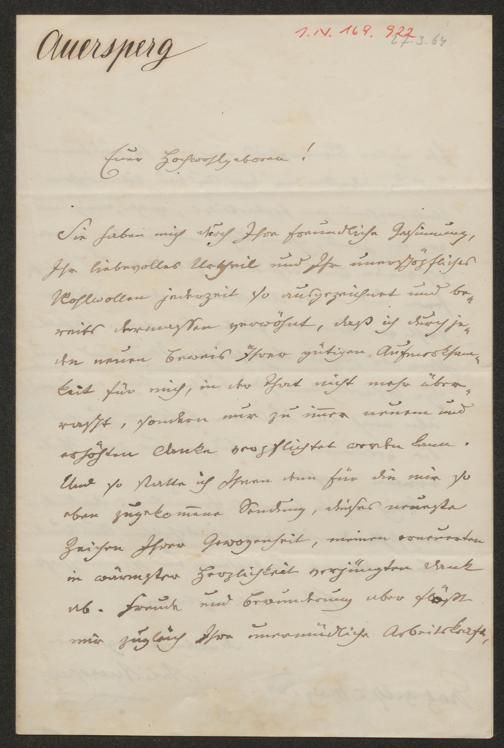 Auersperg
1. IV. 169. 922
27.3.64
Euer Hochwohlgeboren!
Sie haben mich durch Ihre freundliche Gesinnung,
Ihr liebevolles Urtheil und Ihr unerschöpfliches
Wohlwollen jederzeit so ausgezeichnet und be-
reits dermassen verwöhnt, daß ich durch je-
den neuen Beweis Ihrer gütigen Aufmerksam-
keit für mich, in der That nicht mehr über-
rascht, sondern nur zu immer neuem und
erhöhten Danke verpflichtet werden kann.
Und so statte ich Ihnen denn für die mir so
eben zugekommene Sendung, dieses neueste
Zeichen Ihrer Gewogenheit, meinen erneuerten
in wärmster Herzlichkeit verjüngten Dank
ab. Freude und Bewunderung aber flößt
mir zugleich Ihre unermüdliche Arbeitskraft,